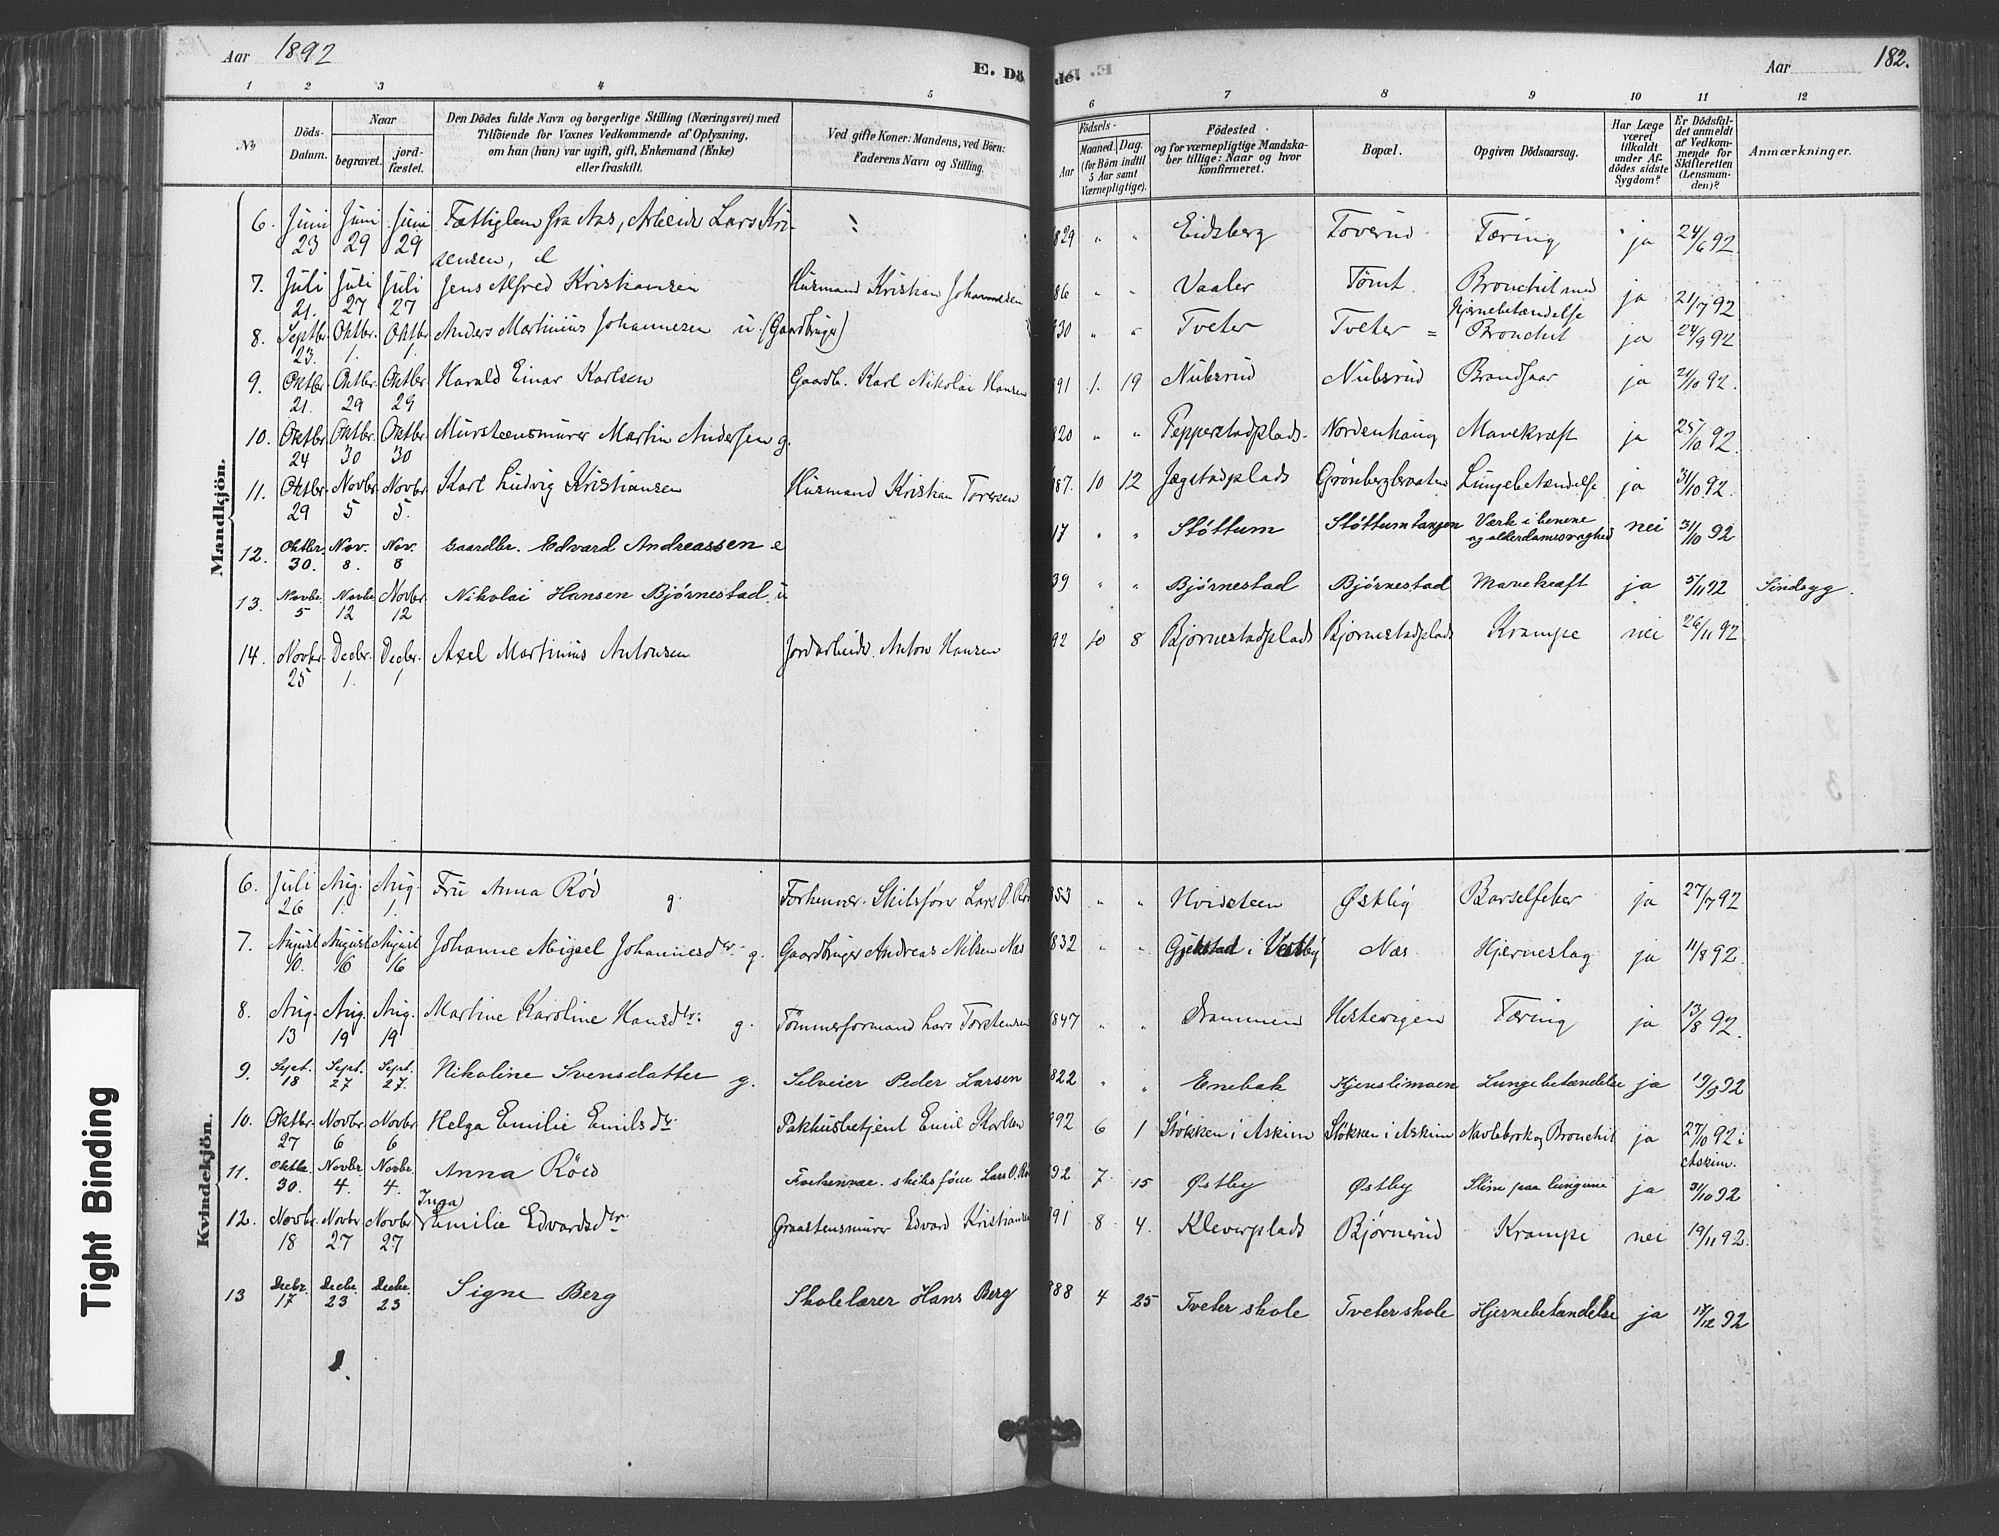 Aar 1892
E. Dö
de.
Aar
182.
1 2 3 4 5 6 7 8 9 10 11 12
No
Döds-Datum.
Naar
begravet.
jordfæstet.
Den Dödes fulde Navn og borgerlige Stilling (Næringsvei) med
Tilföiende for Voxnes Vedkommende af Oplysning,
om han (hun) var ugift, gift, Enkemand (Enke)
eller fraskilt.
Ved gifte Koner: Mandens, ved Börn:
Faderens Navn og Stilling.
Födsels-
Aar
Maaned. Dag.
(for Börn indtil
5 Aar samt
Værnepligtige).
Födested
og for værnepligtige Mandska-
ber tillige: Naar og hvor
konfirmeret.
Bopæl.
Opgiven Dödsaarsag.
Har Læge
været
tilkaldt
under Af-
dödes sidste
Sygdom?
Er Dödsfal-
det anmeldt
af Vedkom-
mende for
Skifteretten
(Lensman-
den)?
Anmærkninger.
Mandkjön.
6. Juni 23 Juni 29 Juni 29 Fattiglem fra Aas, Arbeider Lars Kri-
stensen, 829 " " Eidsberg Toverud Tæring ja 24/6 92
7. Juli 21. Juli 27 Juli 27 Jens Alfred Kristiansen Husmand Kristian Johannesen 86 " " Vaaler Tomt Bronchit med
Hjernebetændelse ja 21/7 92
8. Septbr. 23. Oktbr. 1. Oktbr. 1. Anders Martinius Johannesen u. (Gaardbruger) 830 " " Tveter Tveter = Bronchit ja 24/9 92
9. Oktbr. 21. Oktbr. 29 Oktbr. 29 Harald Einar Karlsen Gaardb. Karl Nikolai Hansen 891 1. 19 Nubsrud Nubsrud Brandsaar ja 21/10 92.
10. Oktbr. 24 Oktbr. 30 Oktbr. 30 Murstensmurer Martin Andersen g. 820 " " Pepperstadplads. Nordenhaug Mavekræft ja 25/10 92
11. Oktbr. 29 Novbr. 5 Novbr. 5. Karl Ludvig Kristiansen Husmand Kristian Toresen 87. 10 12 Jægstadplads Lungebetændelse ja 31/10 92.
12. Oktbr. 30. Nov. 8. Nov. 8. Gaardbr. Edvard Andreassen e 17 " " Støttum Støttumtangen Værk i benene
og alderdomssvaghed nei 31/10 92
13. Novbr. 5 Novbr. 12 Novbr. 12 Nikolai Hansen Bjørnestad u 39 " " Bjørnestad Bjørnestad Mavekræft ja 5/11 92 Sindsyg.
14. Novbr. 25 Decbr. 1. Decbr. 1 Axel Martinius Antonsen Jordarbeider. Anton Hansen 92 10 8 Bjørnestadplads Bjørnestadplads Krampe nei 26/11 92
Kvindekjön.
6. Juli 26 Aug. 1. Aug. 1. Fru Anna Röd g. Forhenvær. Skibsfører Lars O. Röd 853 " " Hvidsteen Østby Barselfeber ja 27/7 92
7. August 10. August 16 August 16 Johanne Johannesdtr. g. Gaardbruger Andreas Nilsen Næs 832 " " Gjelstad i Vestby Næs Hjerneslag ja 11/8 92.
8. Aug. 13 Aug. 19 Aug. 19 Martine Karoline Hansdtr. g. Tømmerformand Lars Torstensen 1847 " " Drammen Hestevigen Tæring ja 13/8 92
9. Sept. 18 Sept. 27 Sept. 27. Nikoline Svensdatter g. Selveier Peder Larsen 822 " " Enebak Lungebetændelse ja 19/9 92
10. Oktbr. 27 Novbr. 6 Novbr. 6 Helga Emilie Emilsdtr. Pakhusbetjent Emil Karlsen 892 6 1 Støkken i Askim Støkken i Askim Navlebrok og Bronchit ja 27/10 92 i
Askim.
11. Oktbr. 30. Novbr. 4. Novbr. 4. Anna Röed Forhenvær. skibsfører Lars O. Rö 92 7. 15 Østby Østby Slim paa lungerne ja 31/10 92
12. Novbr. 18 Novbr. 27 Novbr. 27 Inga Emilie Edvardsdtr. Graastensmurer Edvard Kristiansen 891 8 4. Kleverplads Bjørnerud Krampe nei 19/11 92.
13 Decbr. 17 Decbr. 23 Decbr. 23 Signe Berg Skolelærer Hans Berg 888 4 25 Tveter skole Tveter skole Hjernebetændelse ja 17/12 92
Tight Binding